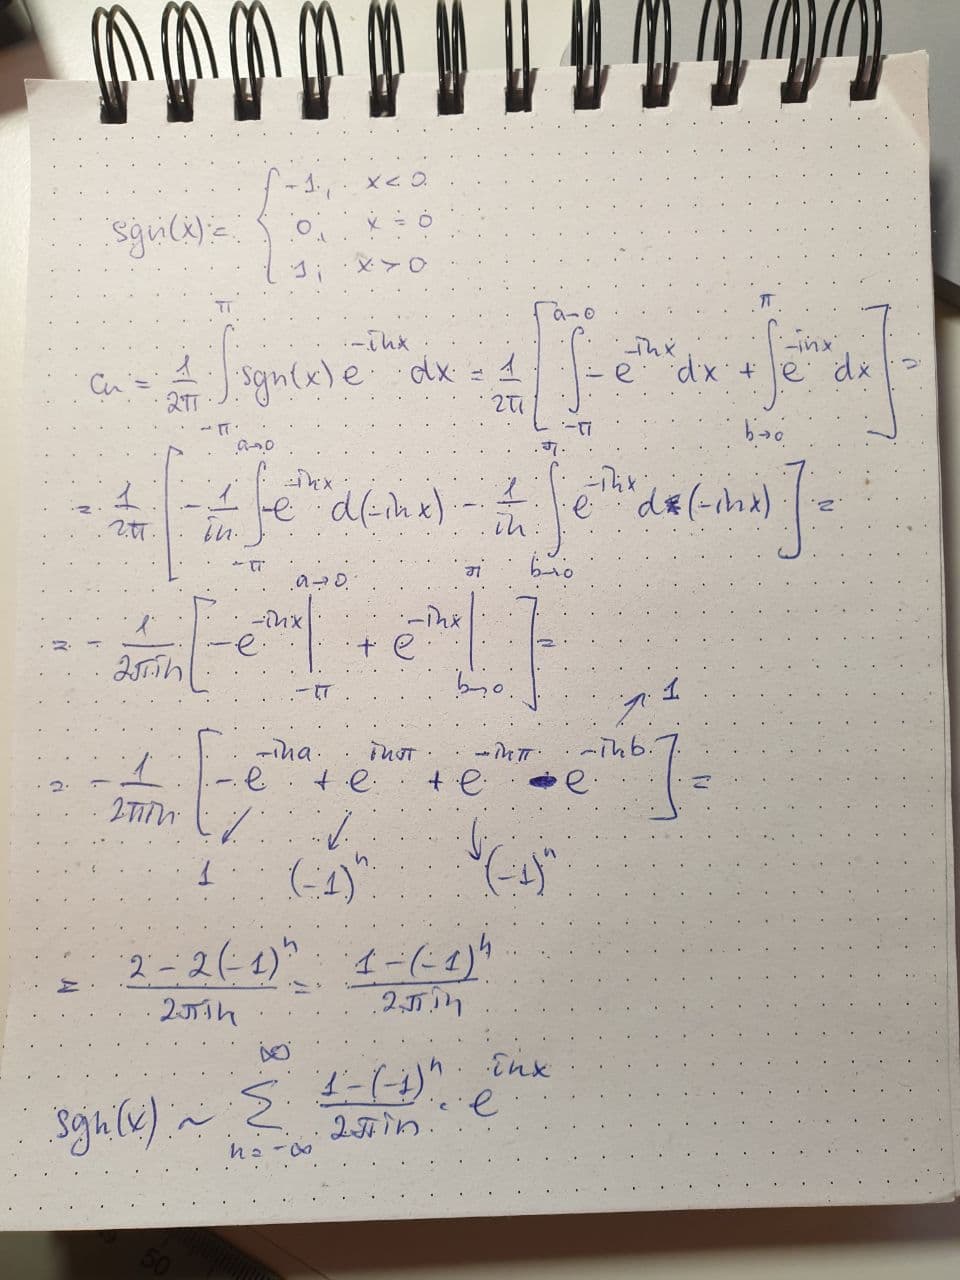 sgn(x) = { -1, x < 0
0, x = 0
1, x > 0
Cn = 1/2π ∫_{-π}^{π} sgn(x) e^{-inx} dx = 1/2π [ ∫_{-π}^{a→0} -e^{-inx} dx + ∫_{b→0}^{π} e^{-inx} dx ] =
= 1/2π [ -1/in ∫_{-π}^{a→0} -e^{-inx} d(-inx) - 1/in ∫_{b→0}^{π} e^{-inx} d(-inx) ] =
= - 1/2πin [ -e^{-inx} |_{-π}^{a→0} + e^{-inx} |_{b→0}^{π} ] =
= - 1/2πin [ -e^{-ina} + e^{inπ} + e^{-inπ} - e^{-inb} ] =
↙ 1 ↙ (-1)^n ↓ (-1)^n ↗ 1
= 2-2(-1)^n / 2πin = 1-(-1)^n / 2πin
sgn(x) ~ ∑_{n=-∞}^{∞} 1-(-1)^n / 2πin · e^{inx}
50